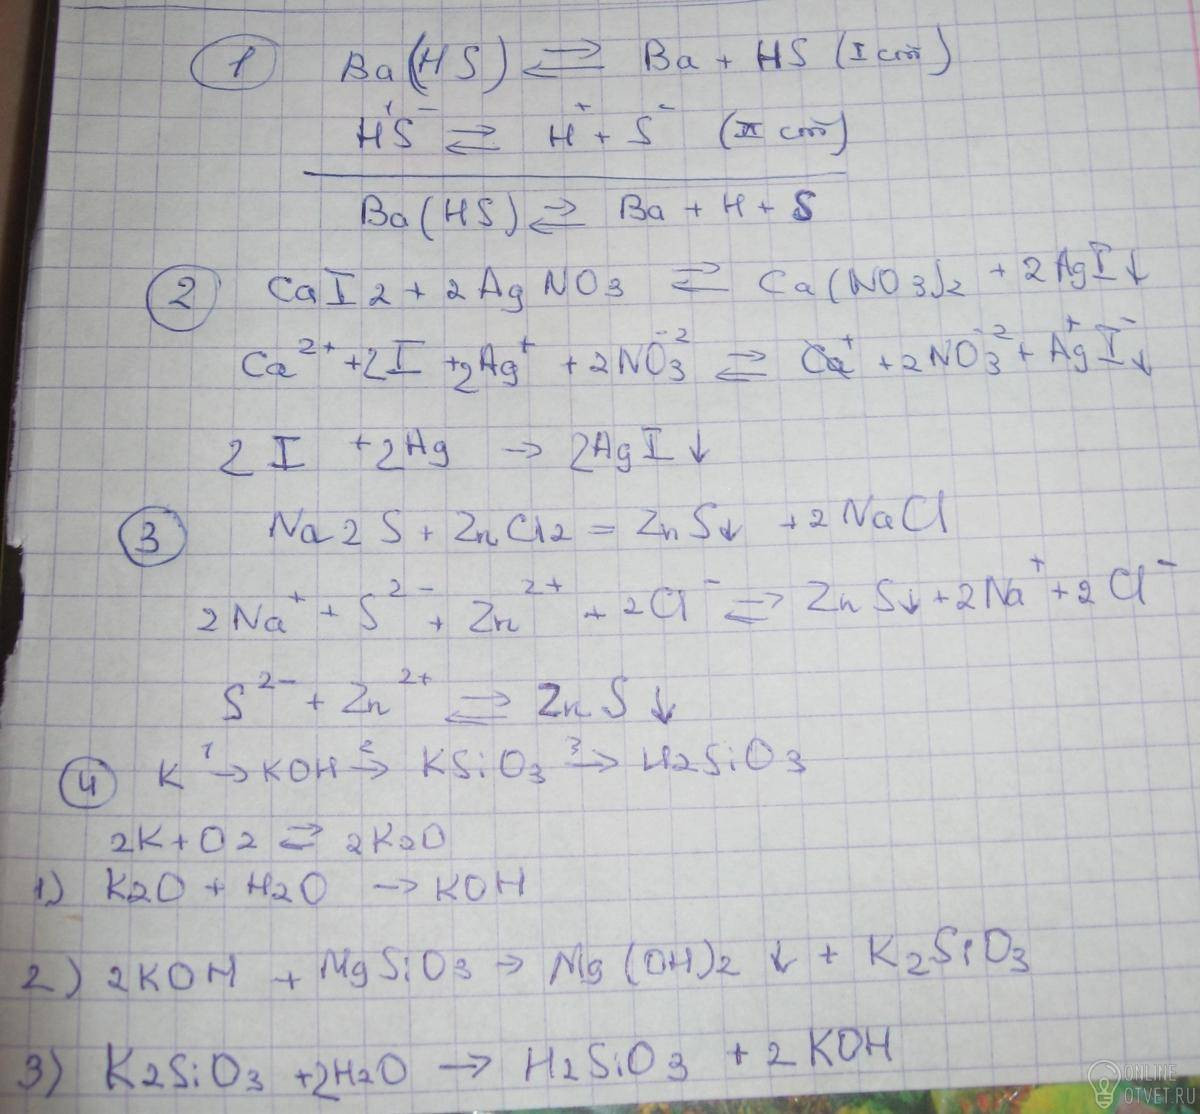 1 Ba(HS) ⇌ Ba + HS (I ст)
H⁺S⁻ ⇌ H⁺ + S⁻ (II ст)
Ba(HS) ⇌ Ba + H + S
2 CaI2 + 2AgNO3 ⇌ Ca(NO3)2 + 2AgI↓
Ca²⁺ + 2I + 2Ag⁺ + 2NO3⁻² ⇌ Ca⁺ + 2NO3⁻² + Ag⁺I⁻↓
2I + 2Ag → 2AgI↓
3 Na2S + ZnCl2 = ZnS↓ + 2NaCl
2Na⁺ + S²⁻ + Zn²⁺ + 2Cl⁻ ⇌ ZnS↓ + 2Na⁺ + 2Cl⁻
S²⁻ + Zn²⁺ ⇌ ZnS↓
4 K →¹ KOH →² KSiO3 →³ H2SiO3
2K + O2 ⇌ 2K2O
1) K2O + H2O → KOH
2) 2KOH + MgSiO3 → Mg(OH)2↓ + K2SiO3
3) K2SiO3 + 2H2O → H2SiO3 + 2KOH
ONLINE
OTVET.RU